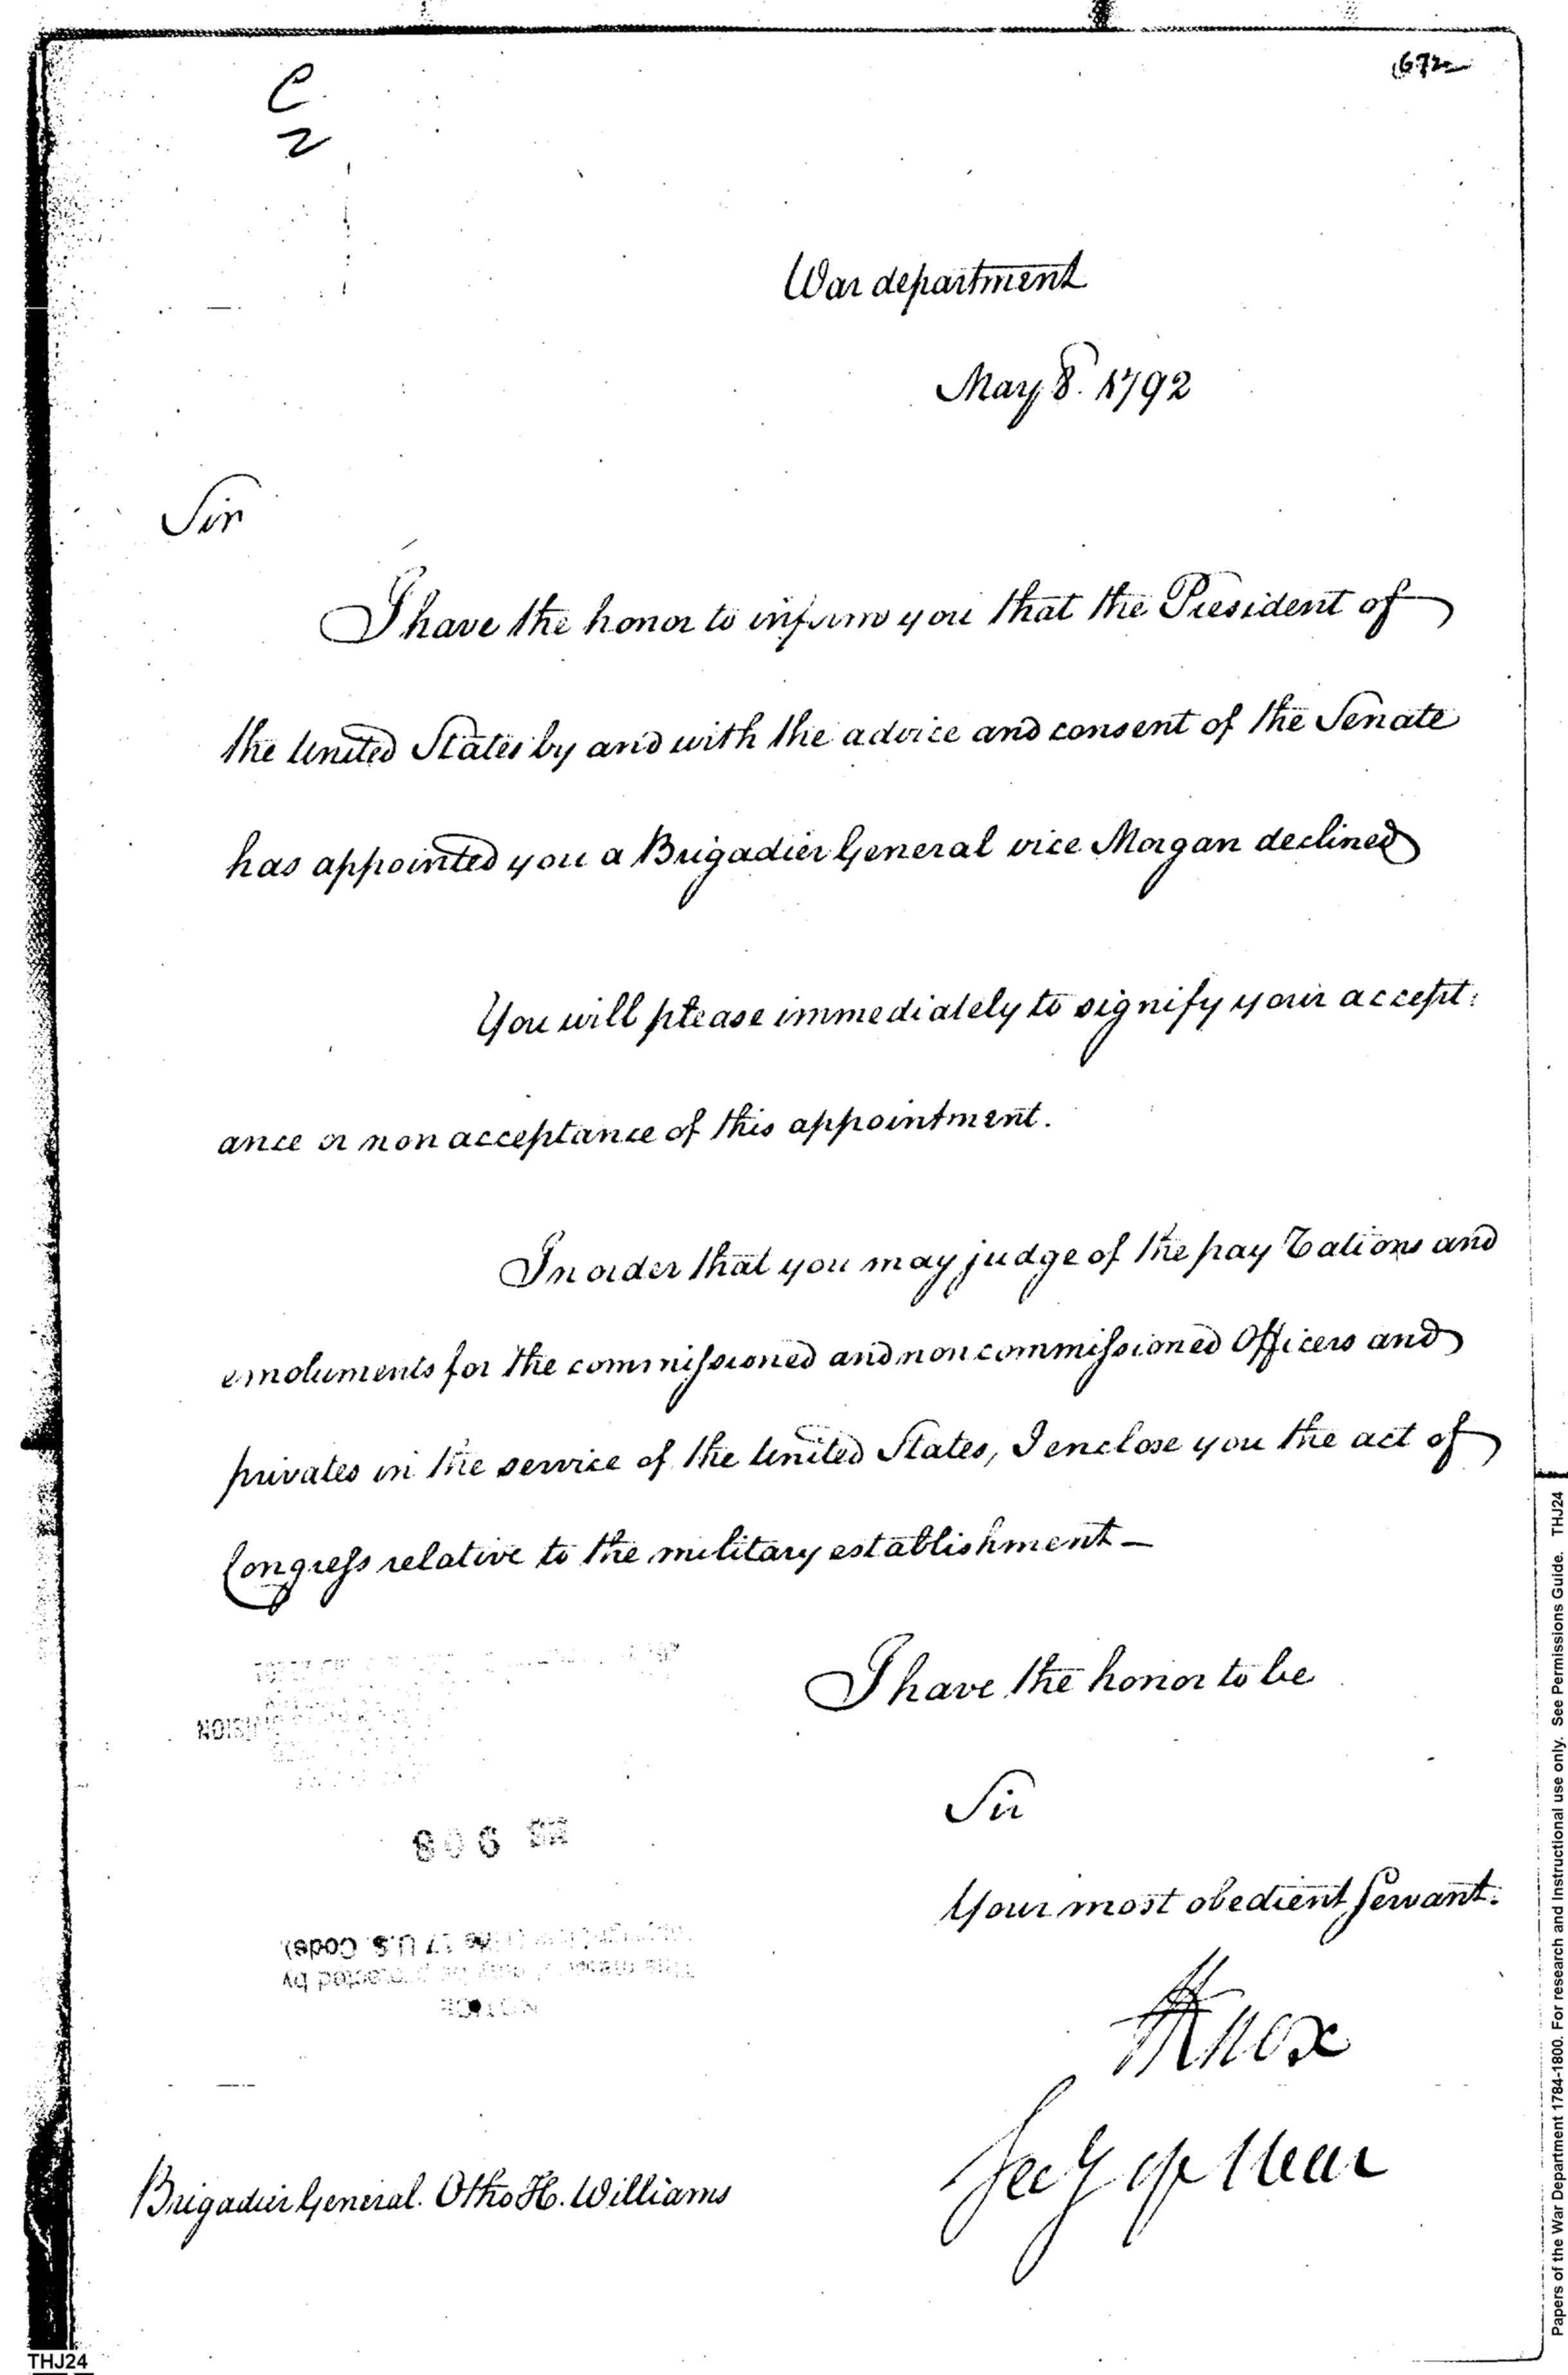 C
2
672
War department
May 8. 1792
Sir
I have the honor to inform you that the President of
the United States by and with the advice and consent of the Senate
has appointed you a Brigadier General vice Morgan declined
You will please immediately to signify your accept:
ance or non acceptance of this appointment.
In order that you may judge of the pay Rations and
emoluments for the commissioned and non commissioned Officers and
privates in the service of the United States, I enclose you the act of
Congress relative to the military establishment —
I have the honor to be
Sir
Your most obedient Servant.
HKnox
Secy of War
Brigadier General. Otho H. Williams
DIVISION
806
This material may be protected by
copyright law (Title 17 U.S. Code).
NOTICE
THJ24
Papers of the War Department 1784-1800. For research and Instructional use only. See Permissions Guide. THJ24